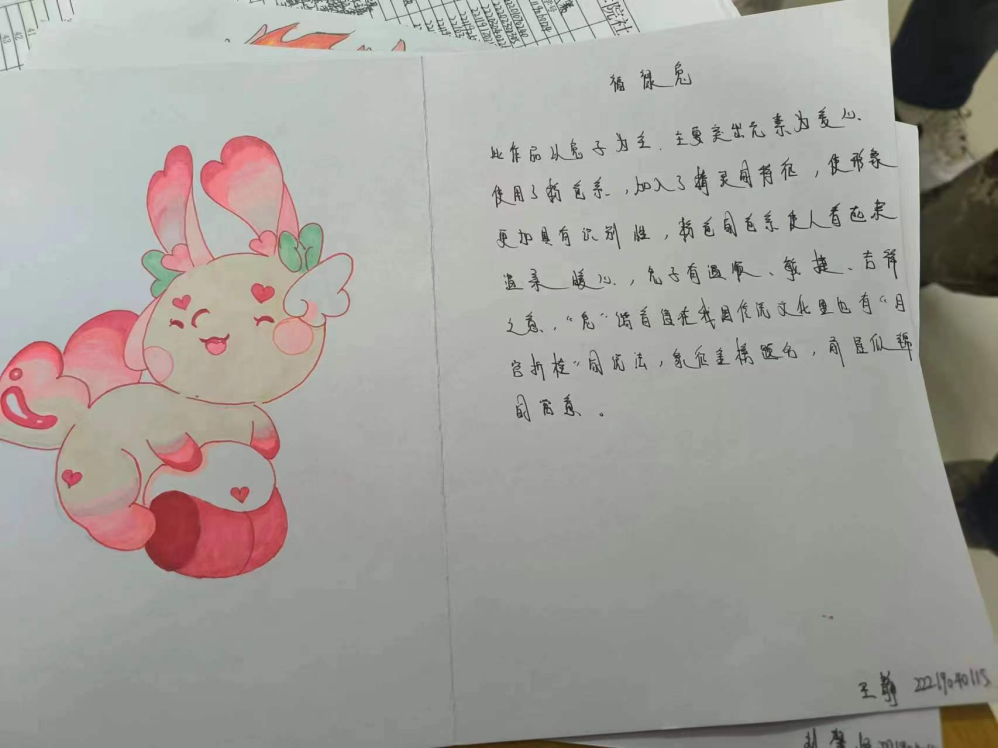 福禄兔
此作品以兔子为主，主要突出元素为爱心.
使用了粉色系，加入了精灵的特征，使形象
更加具有识别性，粉色的色系使人看起来
温柔暖心，兔子有温顺、敏捷、吉祥
之意，“兔”踏首但在我国传统文化里也有“月
宫折桂”的说法，象征金榜题名，前程似锦
的寓意。
王静 22219040115